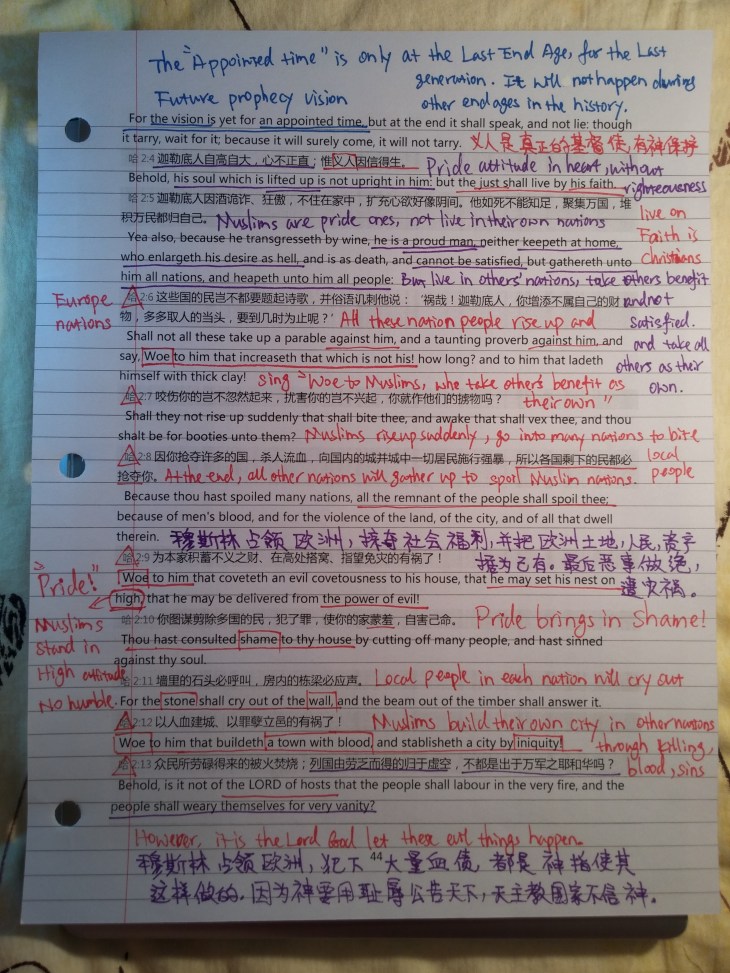 The "Appointed time" is only at the Last End Age, for the Last
generation. It will not happen during
Future prophecy vision
other end ages in the history.
For the vision is yet for an appointed time, but at the end it shall speak, and not lie: though
it tarry, wait for it; because it will surely come, it will not tarry.
义人是真正的基督使,有神保护
哈 2:4 迦勒底人自高自大,心不正直;惟义人因信得生。
Pride attitude in heart, without
righteousness
Behold, his soul which is lifted up is not upright in him: but the just shall live by his faith.
哈 2:5 迦勒底人因酒诡诈、狂傲,不住在家中,扩充心欲好像阴间。他如死不能知足,聚集万国,堆
积万民都归自己。
Muslims are pride ones, not live in their own nations
live on
Faith is
Christians
Yea also, because he transgresseth by wine, he is a proud man, neither keepeth at home,
who enlargeth his desire as hell, and is as death, and cannot be satisfied, but gathereth unto
him all nations, and heapeth unto him all people:
But live in others' nations, take others benefit
and not
satisfied.
and take all
others as their
own.
Europe
nations
哈 2:6 这些国的民岂不都要题起诗歌,并俗语讥刺他说:‘祸哉!迦勒底人,你增添不属自己的财
物,多多取人的当头,要到几时为止呢?’
All these nation people rise up and
Shall not all these take up a parable against him, and a taunting proverb against him, and
say, Woe to him that increaseth that which is not his! how long? and to him that ladeth
himself with thick clay!
sing "Woe to Muslims, who take others' benefit as
their own"
哈 2:7 咬伤你的岂不忽然起来,扰害你的岂不兴起,你就作他们的掳物吗?
Shall they not rise up suddenly that shall bite thee, and awake that shall vex thee, and thou
shalt be for booties unto them?
Muslims rise up suddenly, go into many nations to bite
local
people
哈 2:8 因你抢夺许多的国,杀人流血,向国内的城并城中一切居民施行强暴,所以各国剩下的民都必
抢夺你。
At the end, all other nations will gather up to spoil Muslim nations.
Because thou hast spoiled many nations, all the remnant of the people shall spoil thee;
because of men's blood, and for the violence of the land, of the city, and of all that dwell
therein.
穆斯林占领欧洲,接夺社会福利,并把欧洲土地,人民,资产
据为己有。最后恶事做绝,
遭灾祸。
哈 2:9 为本家积蓄不义之财、在高处搭窝、指望免灾的有祸了!
"Pride!"
Woe to him that coveteth an evil covetousness to his house, that he may set his nest on
high, that he may be delivered from the power of evil!
Muslims
stand in
High attitude
No humble.
哈 2:10 你图谋剪除多国的民,犯了罪,使你的家蒙羞,自害己命。
Pride brings in Shame!
Thou hast consulted shame to thy house by cutting off many people, and hast sinned
against thy soul.
哈 2:11 墙里的石头必呼叫,房内的栋梁必应声。
Local people in each nation will cry out
For the stone shall cry out of the wall, and the beam out of the timber shall answer it.
哈 2:12 以人血建城、以罪孽立邑的有祸了!
Muslims build their own city in other nations
through killing,
blood, sins
Woe to him that buildeth a town with blood, and stablisheth a city by iniquity!
哈 2:13 众民所劳碌得来的被火焚烧;列国由劳乏而得的归于虚空,不都是出于万军之耶和华吗?
Behold, is it not of the LORD of hosts that the people shall labour in the very fire, and the
people shall weary themselves for very vanity?
However, it is the Lord God let these evil things happen.
44
穆斯林占领欧洲,犯下大量血债,都是神指使其
这样做的。因为神要用耻辱公告天下,天主教国家不信神。